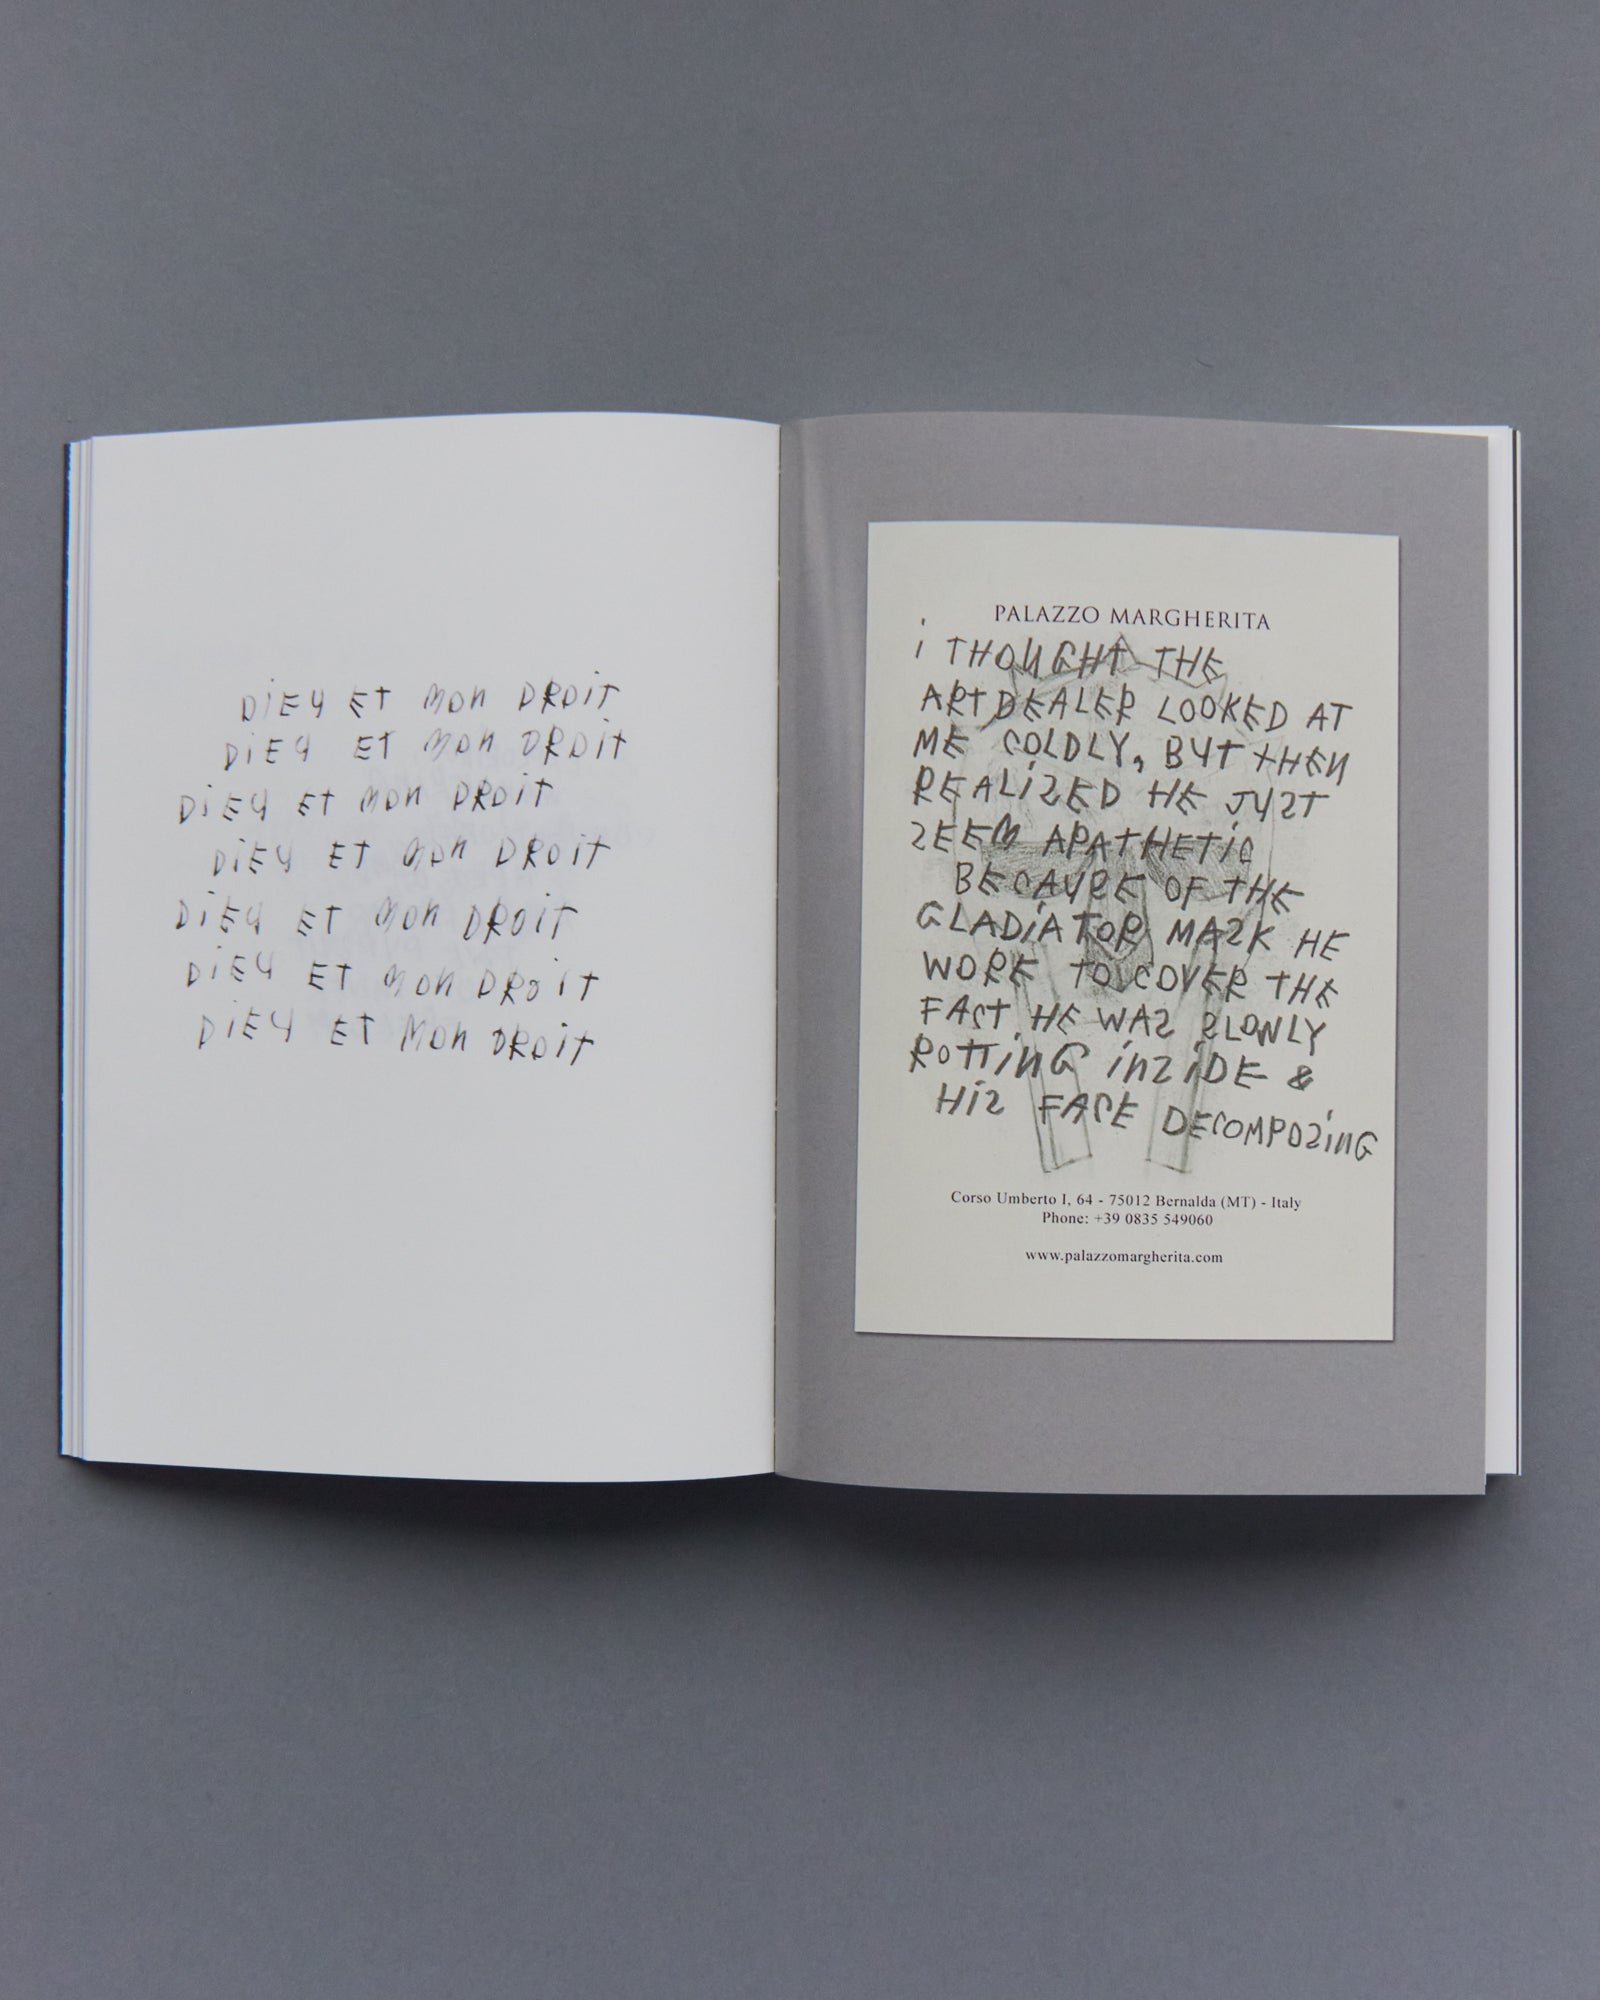 DiEU ET MON DROiT
DiEU ET MON DROiT
DiEU ET MON DROiT
DiEU ET MON DROiT
DiEU ET MON DROiT
DiEU ET MON DROiT
DiEU ET MON DROiT
PALAZZO MARGHERITA
i THOUGHT THE
ART DEALER LOOKED AT
ME COLDLY, BUT THEN
REALiSED HE JUST
SEEM APATHETiC
BECAUSE OF THE
GLADiATOR MASK HE
WORE TO COVER THE
FACT HE WAS SLOWLY
ROTTiNG iNSiDE &
HiS FACE DECOMPOSiNG
Corso Umberto I, 64 - 75012 Bernalda (MT) - Italy
Phone: +39 0835 549060
www.palazzomargherita.com